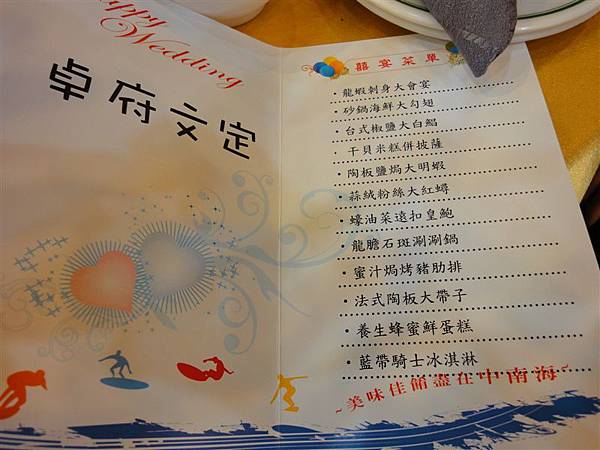 Happy
Wedding
卓府文定
囍宴菜單
・龍蝦刺身大會宴
・砂鍋海鮮大勾翅
・台式椒鹽大白鯧
干貝米糕併披薩
・陶板鹽焗大明蝦
・蒜絨粉絲大紅蟳
・蠔油菜遠扣皇鮑
龍膽石斑涮涮鍋
・蜜汁焗烤豬肋排
・法式陶板大帶子
・養生蜂蜜鮮蛋糕
・藍帶騎士冰淇淋
~美味佳餚盡在中南海~